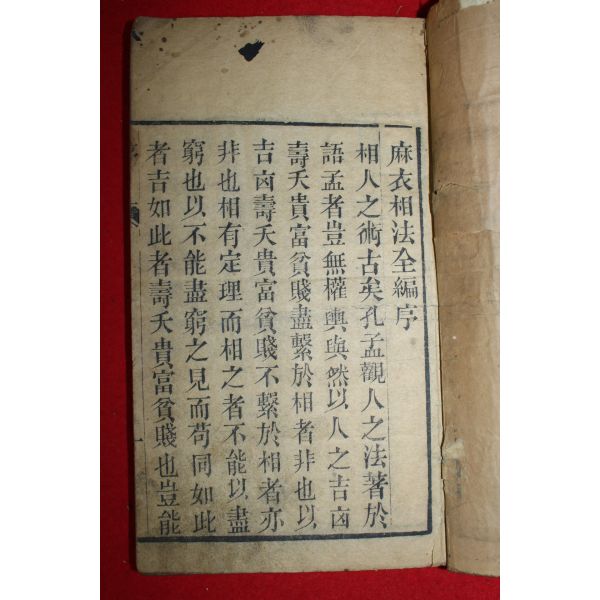 麻衣相法全編序
相人之術古矣孔孟觀人之法著於
語孟者豈無權輿與然以人之吉凶
壽夭貴富貧賤盡繫於相者非也以
吉凶壽夭貴富貧賤不繫於相者亦
非也相有定理而相之者不能以盡
窮也以不能盡窮之見而苟同如此
者吉如此者壽夭貴富貧賤也豈能
序
一